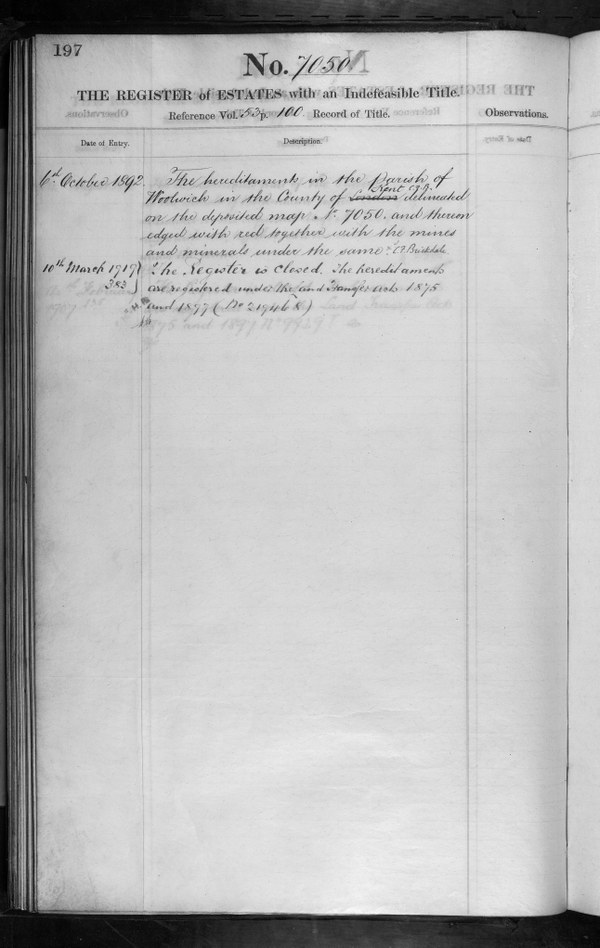 197
No. 7050
THE REGISTER of ESTATES with an Indefeasible Title.
Reference Vol. 53 p. 100. Record of Title.
Observations.
Date of Entry.
Description.
6th October 1892.
The hereditaments in the Parish of
Woolwich in the County of London Kent delineated
on the deposited map No. 7050. and thereon
edged with red together with the mines
and minerals under the same.
10th March 1917
383
The Register is closed. The hereditaments
are registered under the Land Transfer Acts 1875
and 1897 (No 219468)